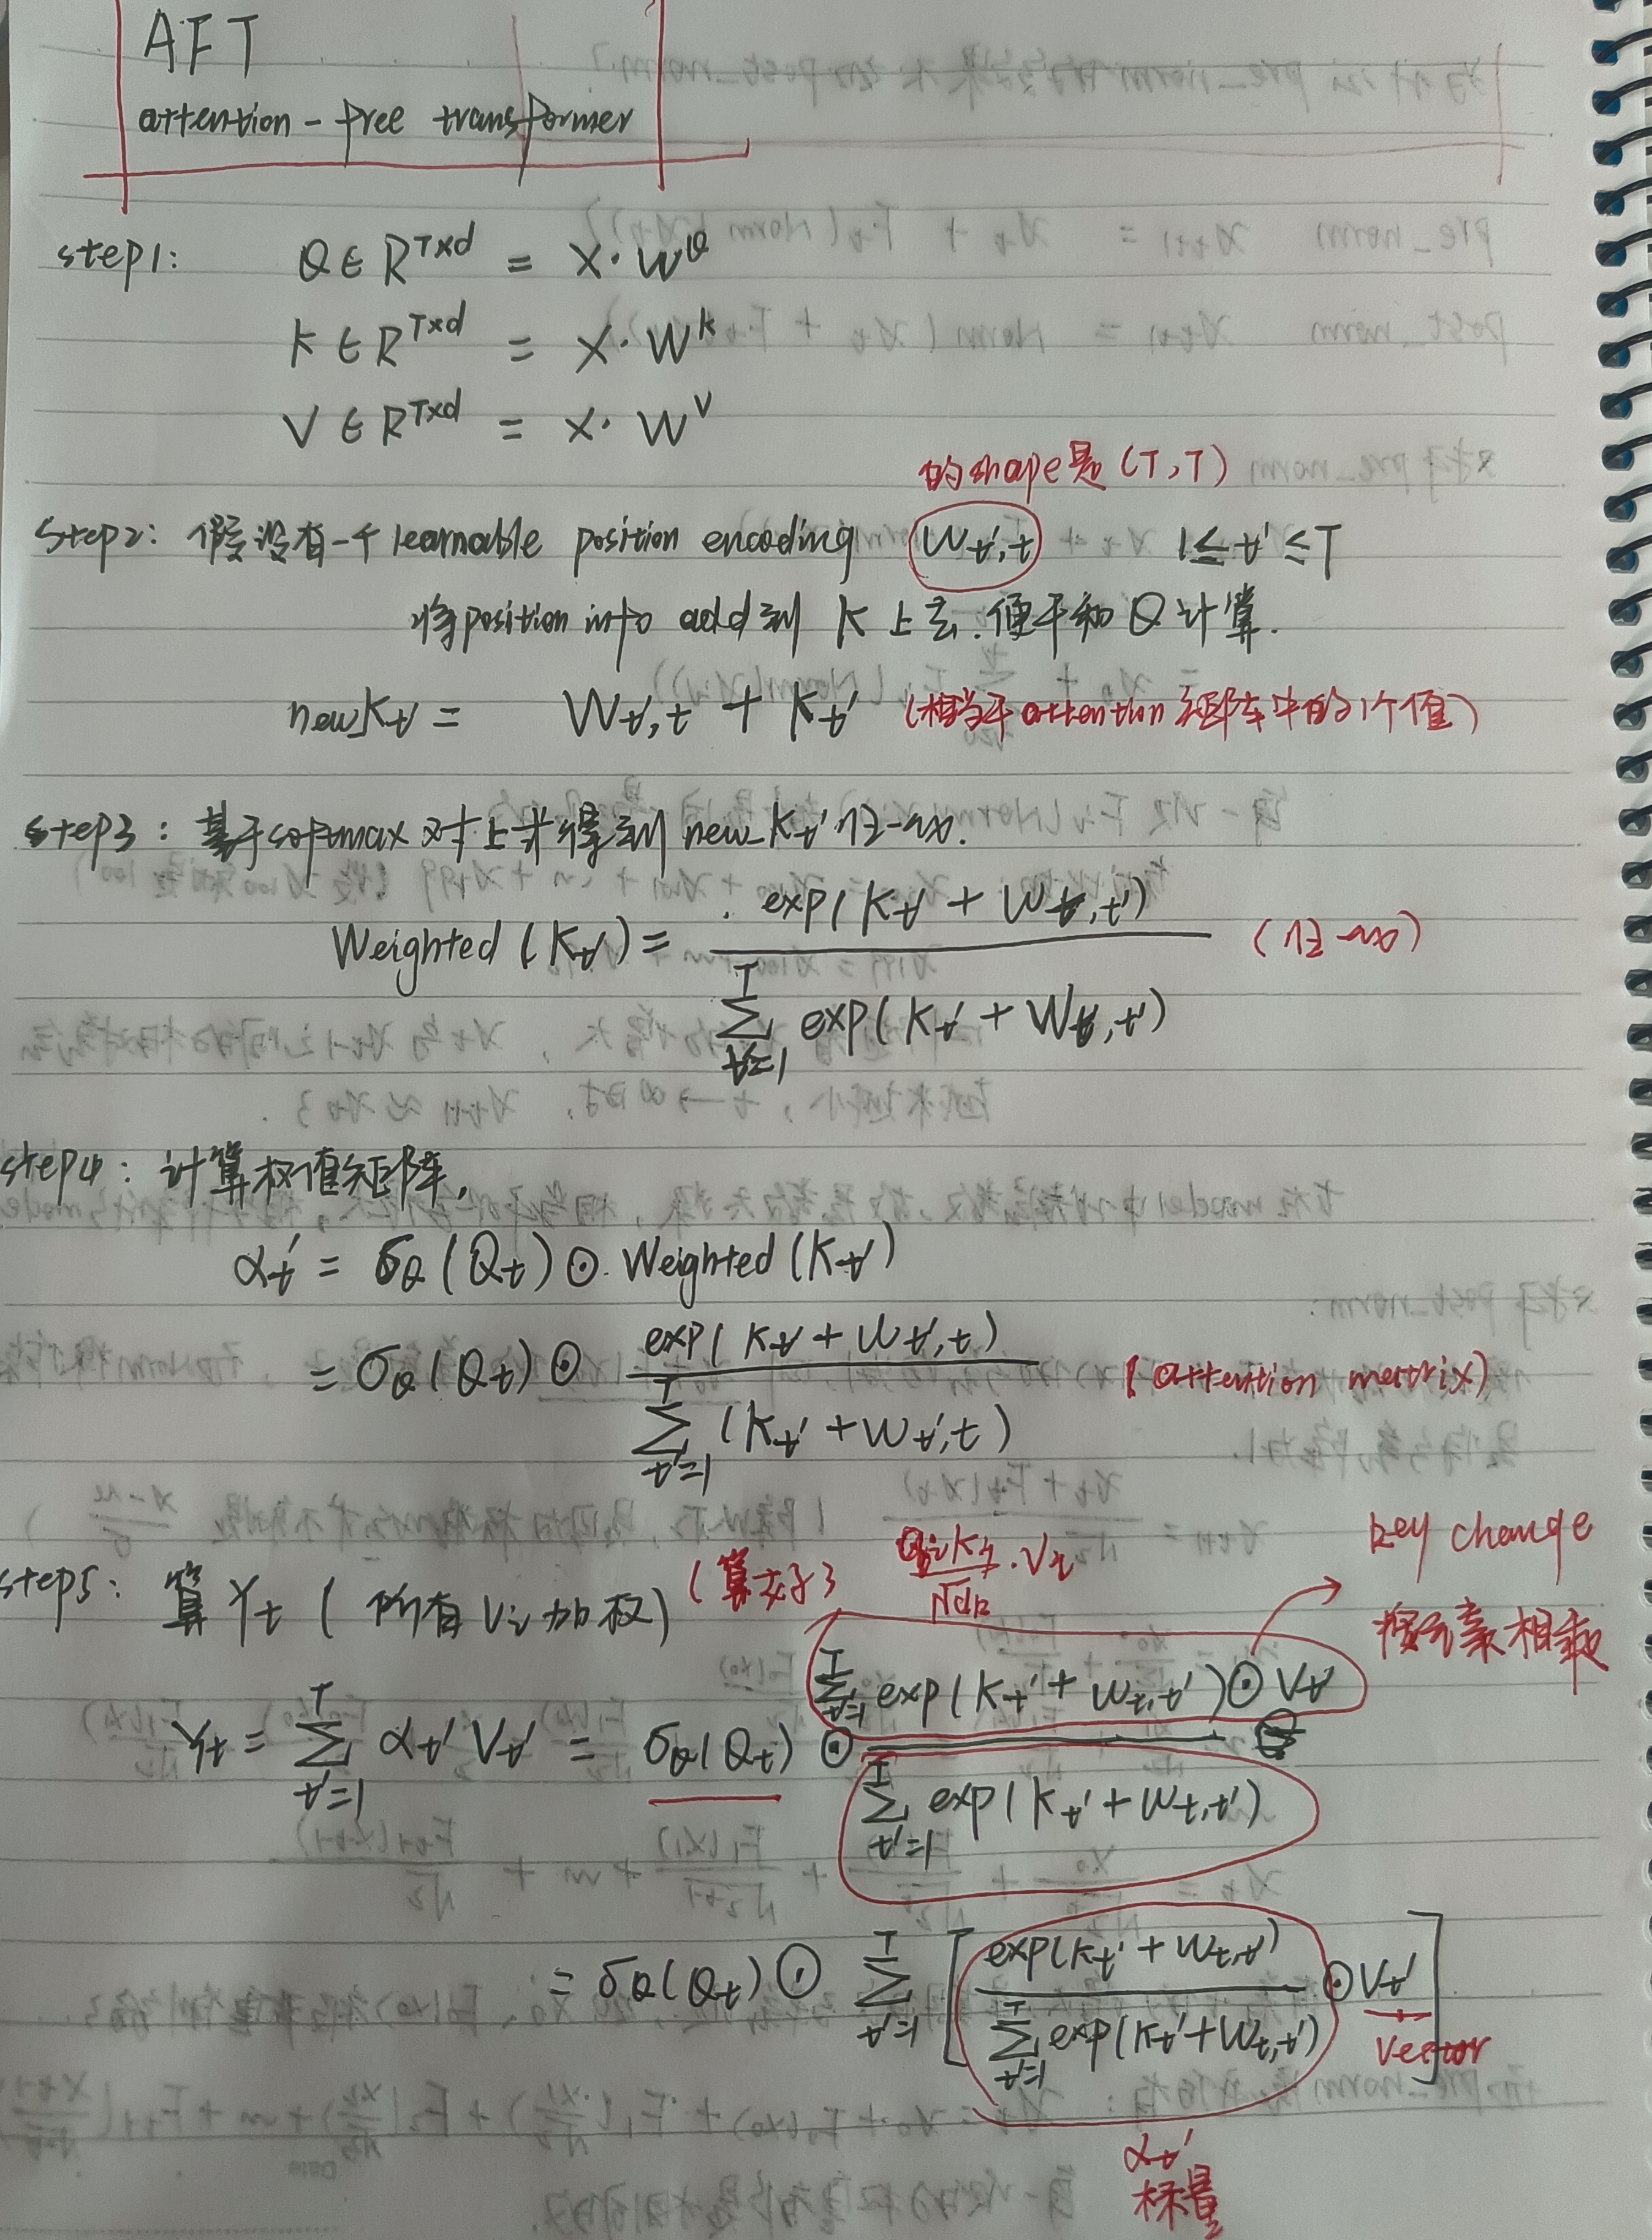 AFT
attention-free transformer
step1: Q ∈ R^{T×d} = X·W^Q
K ∈ R^{T×d} = X·W^K
V ∈ R^{T×d} = X·W^V
的shape是(T,T)
step2: 假设有一个learnable position encoding W_{t',t} 1≤t'≤T
将position info add到K上去,便于和Q计算.
new_K_{t'} = W_{t',t} + K_{t'} (相当于attention矩阵中的1个值)
step3: 基于softmax对上步得到new_K_{t'}归一化.
Weighted(K_{t'}) = exp(K_{t'} + W_{t,t'}) / Σ_{t'=1}^{T} exp(K_{t'} + W_{t,t'}) (归一化)
step4: 计算权值矩阵,
α_{t'} = σ_Q(Q_t) ⊙ Weighted(K_{t'})
= σ_Q(Q_t) ⊙ exp(K_{t'} + W_{t',t}) / Σ_{t'=1}^{T} (K_{t'} + W_{t',t}) (attention metrix)
step5: 算Y_t (所有V_i加权)
key change
按元素相乘
Y_t = Σ_{t'=1}^{T} α_{t'} V_{t'} = σ_Q(Q_t) ⊙ Σ_{t'=1}^{T} exp(K_{t'} + W_{t,t'}) ⊙ V_{t'} / Σ_{t'=1}^{T} exp(K_{t'} + W_{t,t'})
= σ_Q(Q_t) ⊙ Σ_{t'=1}^{T} [ exp(K_{t'} + W_{t,t'}) / Σ_{t'=1}^{T} exp(K_{t'} + W_{t,t'}) ⊙ V_{t'} ]
vector
α_{t'}
标量